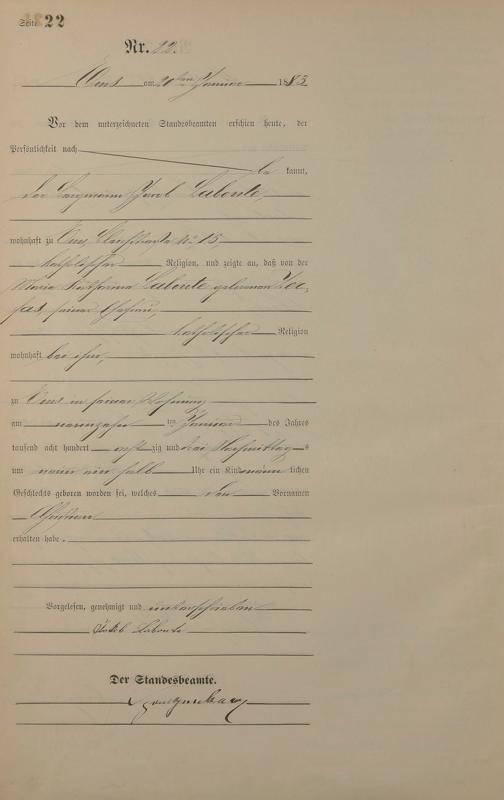 Seite 22
Nr. 22.
Ems am 20ten Januar 1883
Vor dem unterzeichneten Standesbeamten erschien heute, der
Persönlichkeit nach
be kannt,
der Bergmann Jacob Labonte,
wohnhaft zu Ems, No 15,
katholischer Religion, und zeigte an, daß von der
Maria Katharina Labonte geborenen Zer-
fas, seiner Ehefrau,
katholischer Religion
wohnhaft bei ihm,
zu Ems in seiner Wohnung
am neunzehnten Januar des Jahres
tausend acht hundert acht zig und drei Nachmittags
um neun ein halb Uhr ein Kind männ lichen
Geschlechts geboren worden sei, welches den Vornamen
Christian
erhalten habe.
Vorgelesen, genehmigt und unterschrieben
Jakob Labonte
Der Standesbeamte.